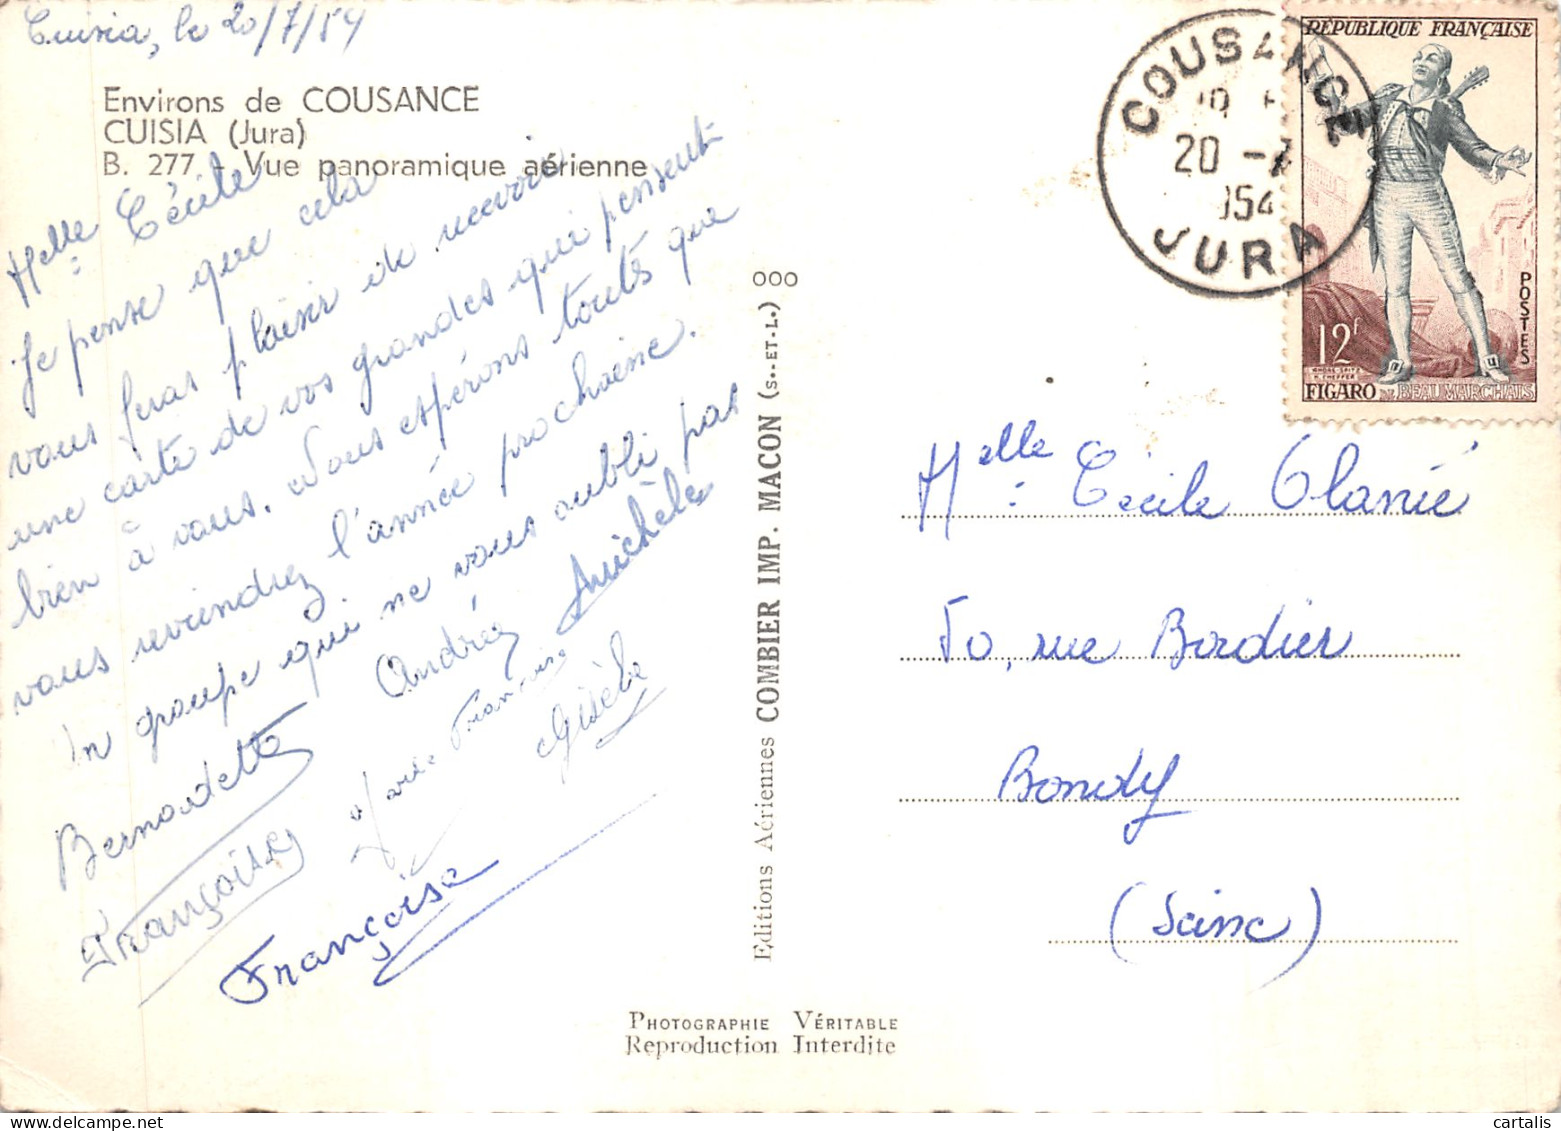 Cuisia, le 20/7/54
Environs de COUSANCE
CUISIA (Jura)
B. 277 - Vue panoramique aérienne
Melle Cécile
Je pense que cela
vous feras plaisir de recevoir
une carte de vos grandes qui pensent
bien à vous. Nous espérons touts que
vous reviendrez l'année prochaine.
Un groupe qui ne vous oubli pas
Bernadette Andrée Michèle
Françoise Marie Françoise Gisèle
Françoise
ooo
Editions Aériennes COMBIER IMP. MACON (S.-ET-L.)
PHOTOGRAPHIE VÉRITABLE
Reproduction Interdite
COUSANCE
20 -7
1954
JURA
RÉPUBLIQUE FRANÇAISE
POSTES
12F
FIGARO DE BEAUMARCHAIS
Melle Cécile Planié
50, rue Bordier
Bondy
(Seine)
cartalis